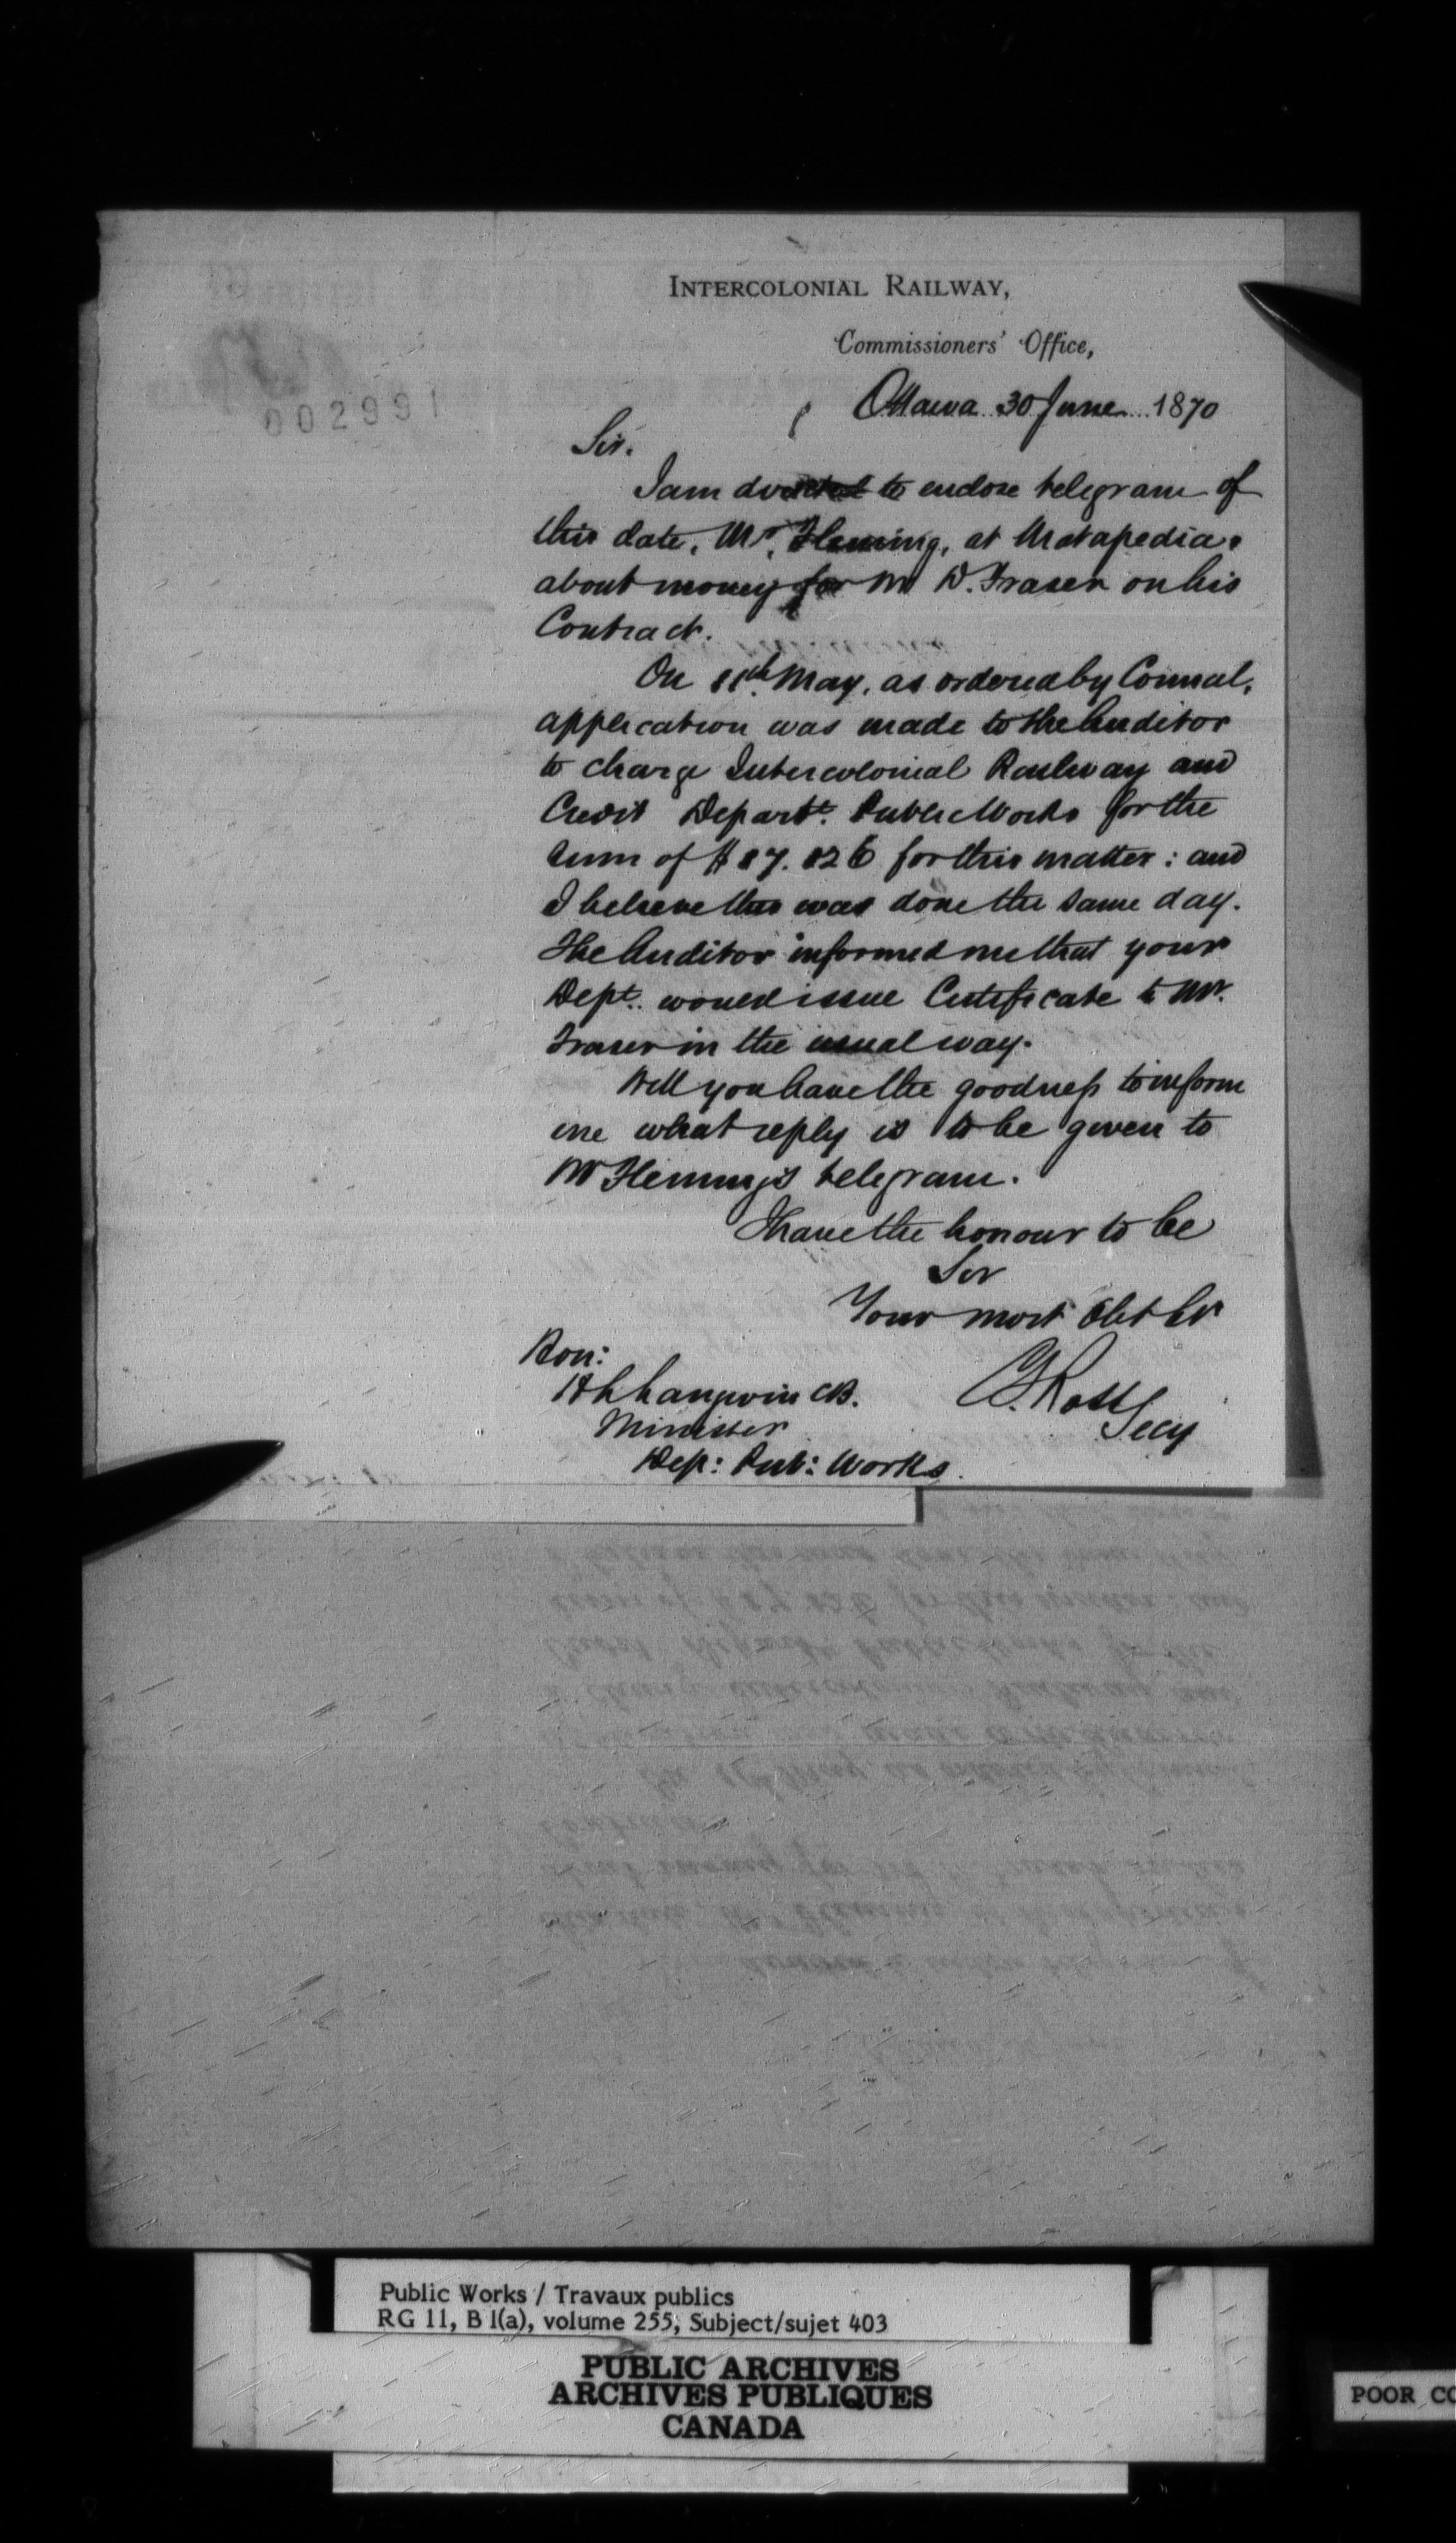 INTERCOLONIAL RAILWAY,
Commissioners' Office,
002991
Ottawa 30 June 1870
Sir.
I am directed to enclose telegram of
this date, Mr. Fleming, at Matapedia.
about money for Mr D. Fraser on his
Contract.
On 11th May, as ordered by Council,
application was made to the Auditor
to charge Intercolonial Railway and
Credit Depart. Public Works for the
sum of $ 87.826 for this matter: and
I believe this was done the same day.
The Auditor informed me that your
Dept. would issue Certificate to Mr.
Fraser in the usual way.
Will you have the goodness to inform
me what reply is to be given to
Mr Fleming's telegram.
I have the honour to be
Sir
Your most Obt Sr
Hon:
H L Langevin CB.
C. S. Ross
Secy
Minister
Dep: Pub: Works.
Public Works / Travaux publics
RG 11, B 1(a), volume 255, Subject/sujet 403
PUBLIC ARCHIVES
ARCHIVES PUBLIQUES
CANADA
POOR CO